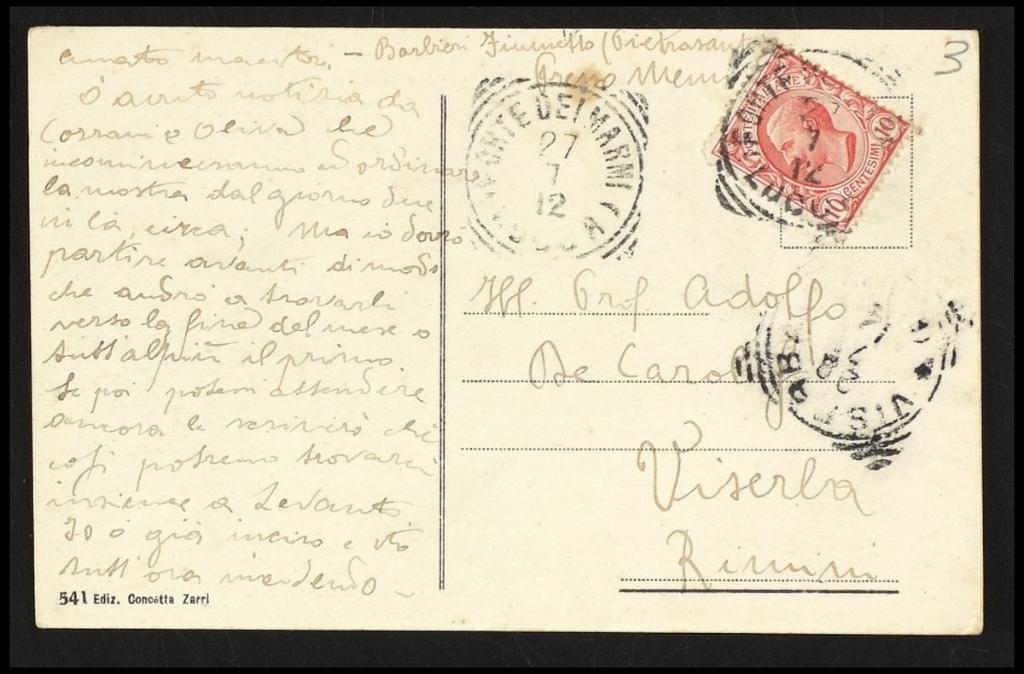 amato maestro, – Barbieri (Pietrasanta
3
ò avuto notizia da
Corrani e Oliva che
incominceranno ad ordinare
la mostra dal giorno due
in là, circa; Ma io dovrò
partire avanti di modo
che andrò a trovarli
verso la fine del mese o
tutt'al più il primo
Se poi potem attendere
ancora le scriverò che
così potremo trovarci
insieme a Levanto
Io ò già inciso e sto
tutt'ora incidendo –
541 Ediz. Concetta Zarri
FORTE DEI MARMI
27
7
12
LUCCA
FORTE
7
12
LUCCA
POSTE ITALIANE
CENTESIMI 10
10
Ill. Prof. Adolfo
De Carolis
VISERBA
Viserba
Rimini